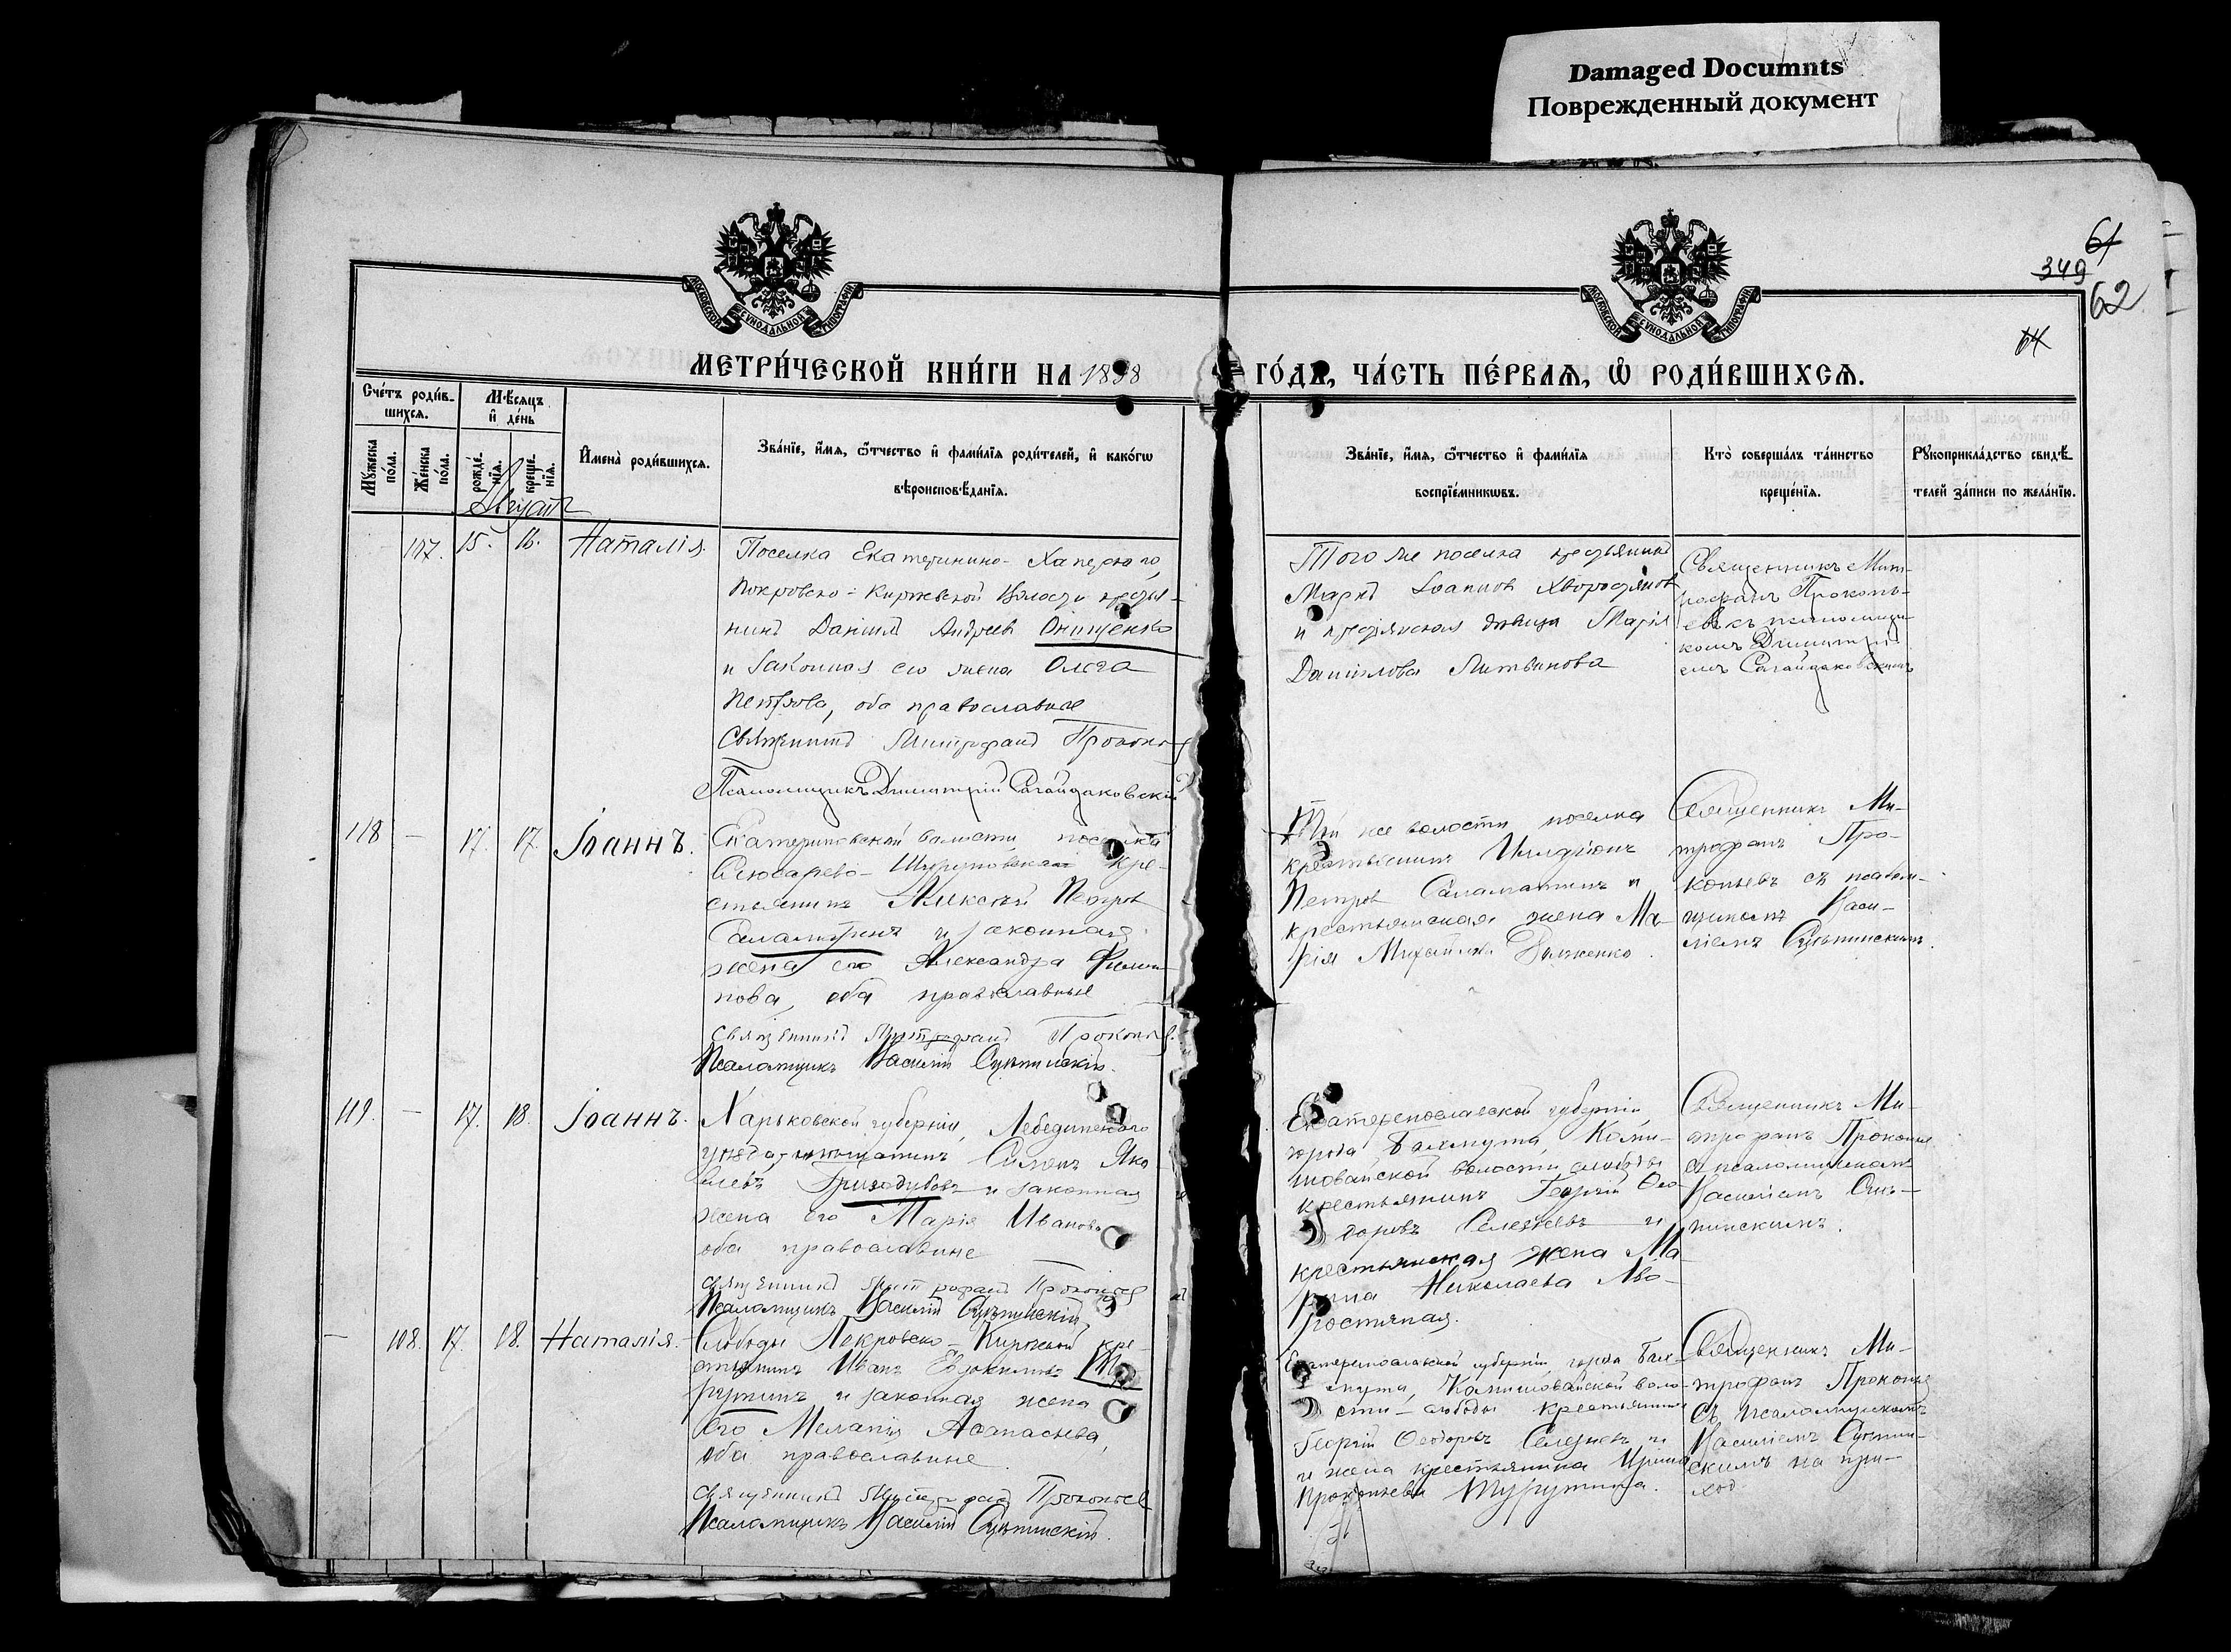 Damaged Documnts
Поврежденный документ
61
349
62
64
МОСКОВСКОЙ СѴНОДАЛЬНОЙ ТИПОГРАФІИ
МОСКОВСКОЙ СѴНОДАЛЬНОЙ ТИПОГРАФІИ
МЕТРИ́ЧЕСКОЙ КНИ́ГИ НА 1898
ГО́ДЪ, ЧА́СТЬ ПЕ́РВАЯ, Ѡ РОДИ́ВШИХСЯ.
Сче́тъ роди́в-
шихся.
Мꙋ́жеска
по́ла.
Же́нска
по́ла.
Мѣ́сяцъ
и҆ де́нь
рожде́-
нїя.
креще́-
нїя.
Августъ
И҆мена̀ роди́вшихся.
Зва́нїе, и҆́мя, ѻ҆́тчество и҆ фами́лїя роди́телей, и҆ како́гѡ
вѣроисповѣ́данїя.
Зва́нїе, и҆́мя, ѻ҆́тчество и҆ фами́лїя
воспрїе́мникѡвъ.
Кто̀ соверша́лъ та́инство
креще́нїя.
Рꙋкоприкла́дство свидѣ́-
телей за́писи по жела́нїю.
107. 15. 16. Наталія.
Поселка Екатеринино-Хаперского,
Покровско-Киреевской Волости крестья-
нинъ Даніилъ Андреевъ Онищенко
и законная его жена Олга
Петрова, оба православные
Священникъ Митрофанъ Прокопьев
Псаломщикъ Димитрій Сагайдаковскій
Того же поселка крестьянинъ
Маркъ Іоанновъ
и крестьянская дѣвица Марія
Даниилова Литвинова
Священникъ Мит-
рофанъ Прокопь-
евъ съ псаломщи-
комъ Димитрі-
емъ Сагайдаковскимъ
118 — 17. 17. Іоаннъ.
Екатериновской волости поселка
Слюсарево- кре-
стьянинъ Алексѣй Петров
Саламатинъ и законная
жена его Александра Филип-
пова, оба православные
Священникъ Митрофанъ Прокопьев
Псаломщикъ Василій
Той же волости поселка
крестьянинъ Илларіонъ
Петров Саламатинъ и
крестьянская жена Ма-
рія Михайлова
Священникъ Ми-
трофанъ Про-
копьевъ съ псалом-
щикомъ Васи-
ліемъ
119. — 17. 18. Іоаннъ.
Харьковской губерніи, Лебединского
уѣзда, Симонъ Яко-
влевъ и законная
жена его Марія Иванова
оба православные
Священникъ Митрофанъ Прокопьев
Псаломщикъ Василій
Екатеринославской губерніи
города Бахмута, Ками-
шовайской волости слободы
крестьянинъ Георгій Ѳео-
доровъ Селезневъ и
крестьянская жена Ма-
рина Николаева
Священникъ Ми-
трофанъ Прокопьев
съ псаломщикомъ
Василіемъ
— 108. 17. 18. Наталія.
Слободы Покровско-Киреевской кре-
стьянинъ Иванъ Евдокимовъ
и законная жена
его Меланія Аѳанасьева,
оба православные
Священникъ Митрофанъ Прокопьев
Псаломщикъ Василій
Екатеринославской губерніи, города Бах-
мута, Камишовайской воло-
сти слободы крестьянинъ
Георгій Ѳеодоровъ Селезневъ и
и жена крестьянина Ирина
Прокопьева
Священникъ Ми-
трофанъ Прокопьев
съ псаломщикомъ
Василіемъ
на при-
ход